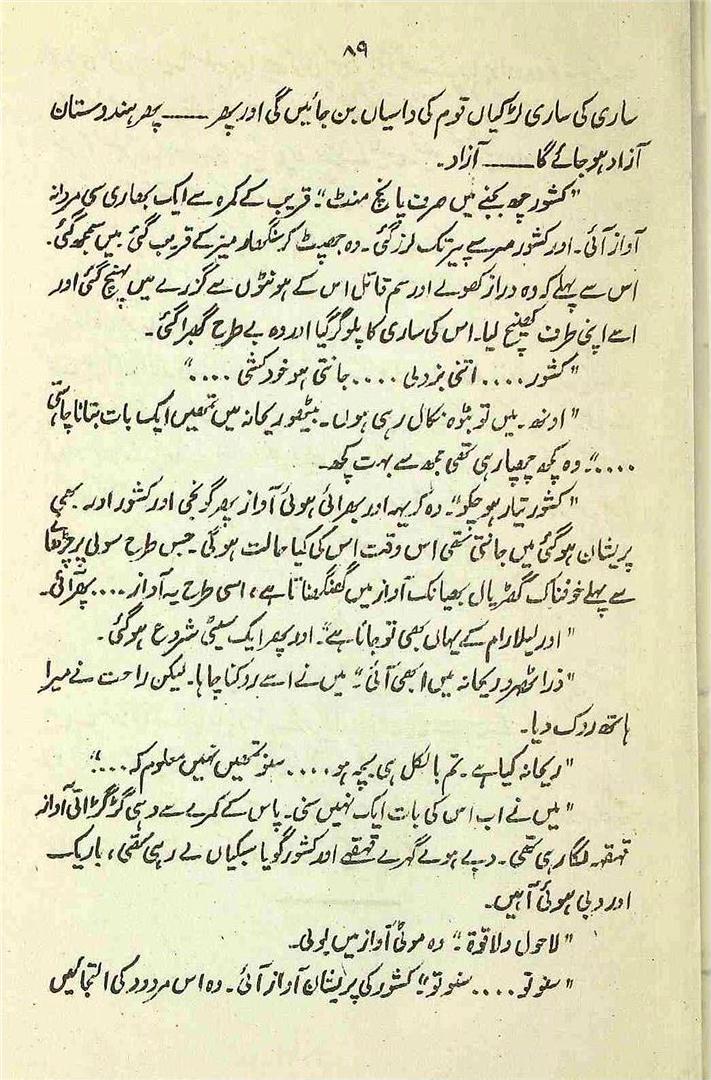 ۸۹
ساری کی ساری لڑکیاں قوم کی داسیاں بن جائیں گی اور پھر —— پھر ہندوستان
آزاد ہو جائے گا —— آزاد۔
"کشور چھ بجنے میں صرف پانچ منٹ"۔ قریب کے کمرہ سے ایک بھاری سی مردانہ
آواز آئی۔ اور کشور سر سے پیر تک لرز گئی۔ وہ جھپٹ کر سنگھار میز کے قریب گئی میں سمجھ گئی۔
اس سے پہلے کہ وہ دراز کھولے اور سم قاتل اس کے ہونٹوں سے گزرے میں پہنچ گئی اور
اسے اپنی طرف کھینچ لیا۔ اس کی ساری کا پلو گر گیا اور وہ بے طرح گھبرا گئی۔
"کشور .... اتنی بزدلی .... جانتی ہو خودکشی ...."
"اونھ۔ میں تو بٹوہ نکال رہی ہوں۔ بیٹھو ریحانہ میں تمھیں ایک بات بتانا چاہتی
...."۔ وہ کچھ چھپا رہی تھی مجھ سے بہت کچھ۔
"کشور تیار ہو چکو"۔ وہ کریہہ اور بھرائی ہوئی آواز پھر گونجی اور کشور اور بھی
پریشان ہو گئی میں جانتی تھی اس وقت اس کی کیا حالت ہو گی۔ جس طرح سولی پر چڑھانے
سے پہلے خوفناک گھڑیال بھیانک آواز میں گھنگھناتا ہے، اسی طرح یہ آواز .... پھر آئی۔
"اور لیلا رام کے یہاں بھی تو جانا ہے"۔ اور پھر ایک سیٹی شروع ہو گئی۔
"ذرا ٹھہرو ریحانہ میں ابھی آئی"۔ میں نے اسے روکنا چاہا۔ لیکن راحت نے میرا
ہاتھ روک دیا۔
"ریحانہ کیا ہے۔ تم بالکل ہی بچہ ہو .... سنو تمھیں نہیں معلوم کہ ...."
"میں نے اب اس کی بات ایک نہیں سنی۔ پاس کے کمرے سے وہی گڑگڑاتی آواز
قہقہہ لگا رہی تھی۔ دبے ہوئے گہرے قہقہے اور کشور گویا سبکیاں لے رہی تھی، باریک
اور دبی ہوئی آہیں۔
"لاحول ولا قوۃ"۔ وہ موٹی آواز میں بولی۔
"سنو تو .... سنو تو"۔ کشور کی پریشان آواز آئی۔ وہ اس مردود کی التجائیں